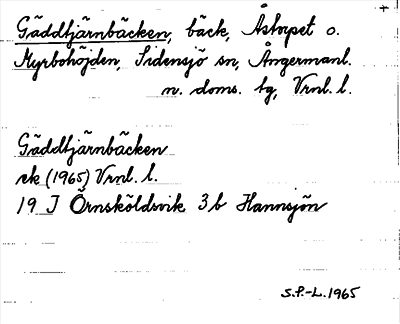 Gäddtjärnbäcken, bäck, Åstorpet o.
Myrbohöjden, Sidensjö sn, Ångermanl.
n. doms. tg, Vrnl. l.
Gäddtjärnbäcken
ek (1965) Vrnl. l.
19 J Örnsköldsvik 3b Hannsjön
S.P.-L. 1965